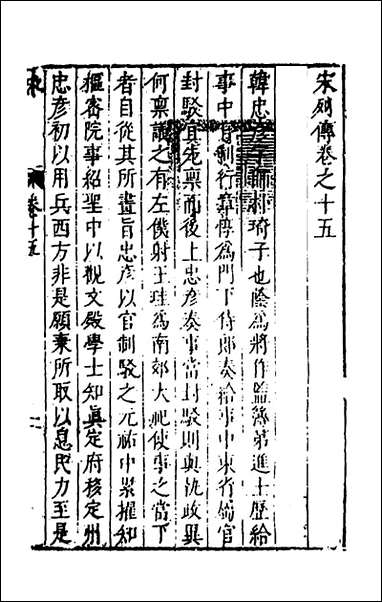 宋列傳卷之十五
韓忠彦字師朴琦子也䕃為將作監簿第進士歷給
事中官制行章惇為門下侍郎奏給事中東省屬官
封駮宜先稟而後上忠彦奏事當封駮則與執政異
何稟議之有左僕射王珪為南郊大祀使事之當下
者自從其所畫旨忠彦以官制駮之元祐中累擢知
樞密院事紹聖中以觀文殿學士知真定府移定州
忠彦初以用兵西方非是願棄所取以息民力至是
卷十五
一